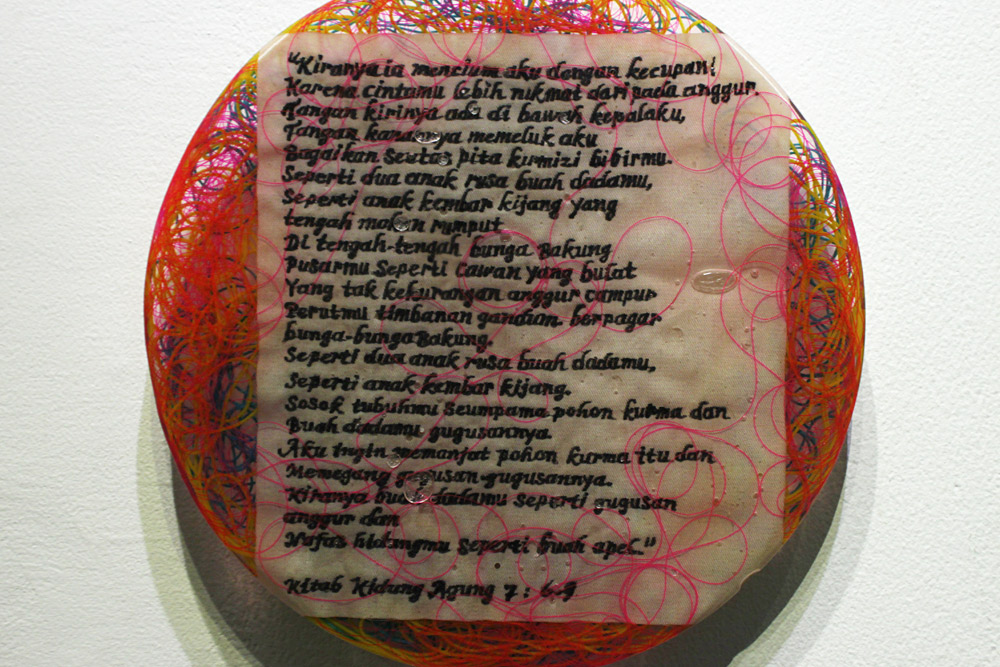 "Kiranya ia mencium aku dengan kecupan!
Karena cintamu lebih nikmat dari pada anggur.
Tangan kirinya ada di bawah kepalaku,
Tangan kanannya memeluk aku
Bagaikan seutas pita kirmizi bibirmu.
Seperti dua anak rusa buah dadamu,
Seperti anak kembar kijang yang
tengah makan rumput
Di tengah-tengah bunga Bakung
Pusarmu Seperti Cawan yang bulat
Yang tak kekurangan anggur campur
Perutmu timbanan gandum berpagar
bunga-bunga Bakung.
Seperti dua anak rusa buah dadamu,
Seperti anak kembar kijang.
Sosok tubuhmu seumpama pohon kurma dan
Buah dadamu gugusannya.
Aku ingin memanjat pohon kurma itu dan
Memegang gugusan-gugusannya.
Kiranya buah dadamu seperti gugusan
anggur dan
Nafas hidungmu seperti buah apel."
Kitab Kidung Agung 7 : 6-9